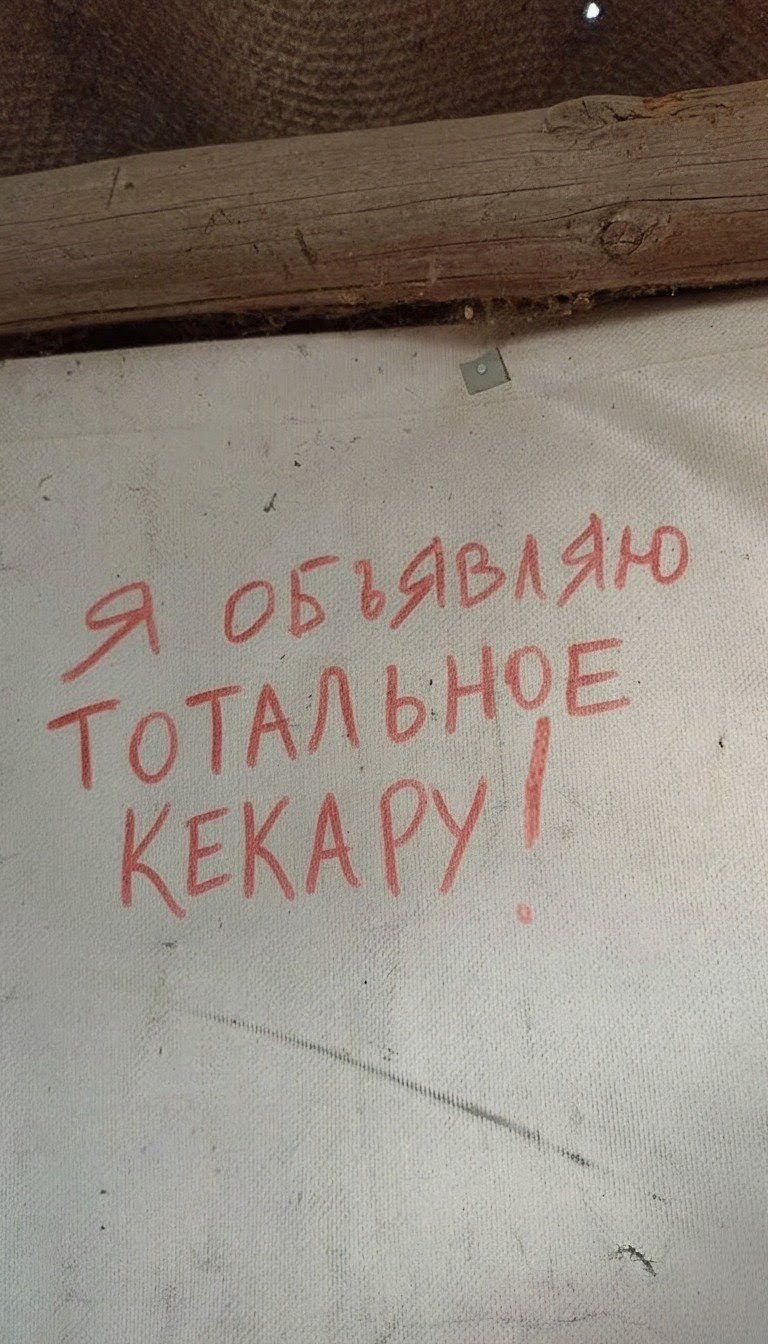 Я ОБЪЯВЛЯЮ
ТОТАЛЬНОЕ
КЕКАРУ!